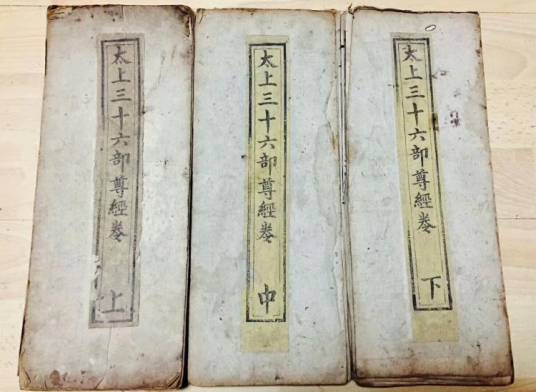 太上三十六部尊經卷上
太上三十六部尊經卷中
太上三十六部尊經卷下